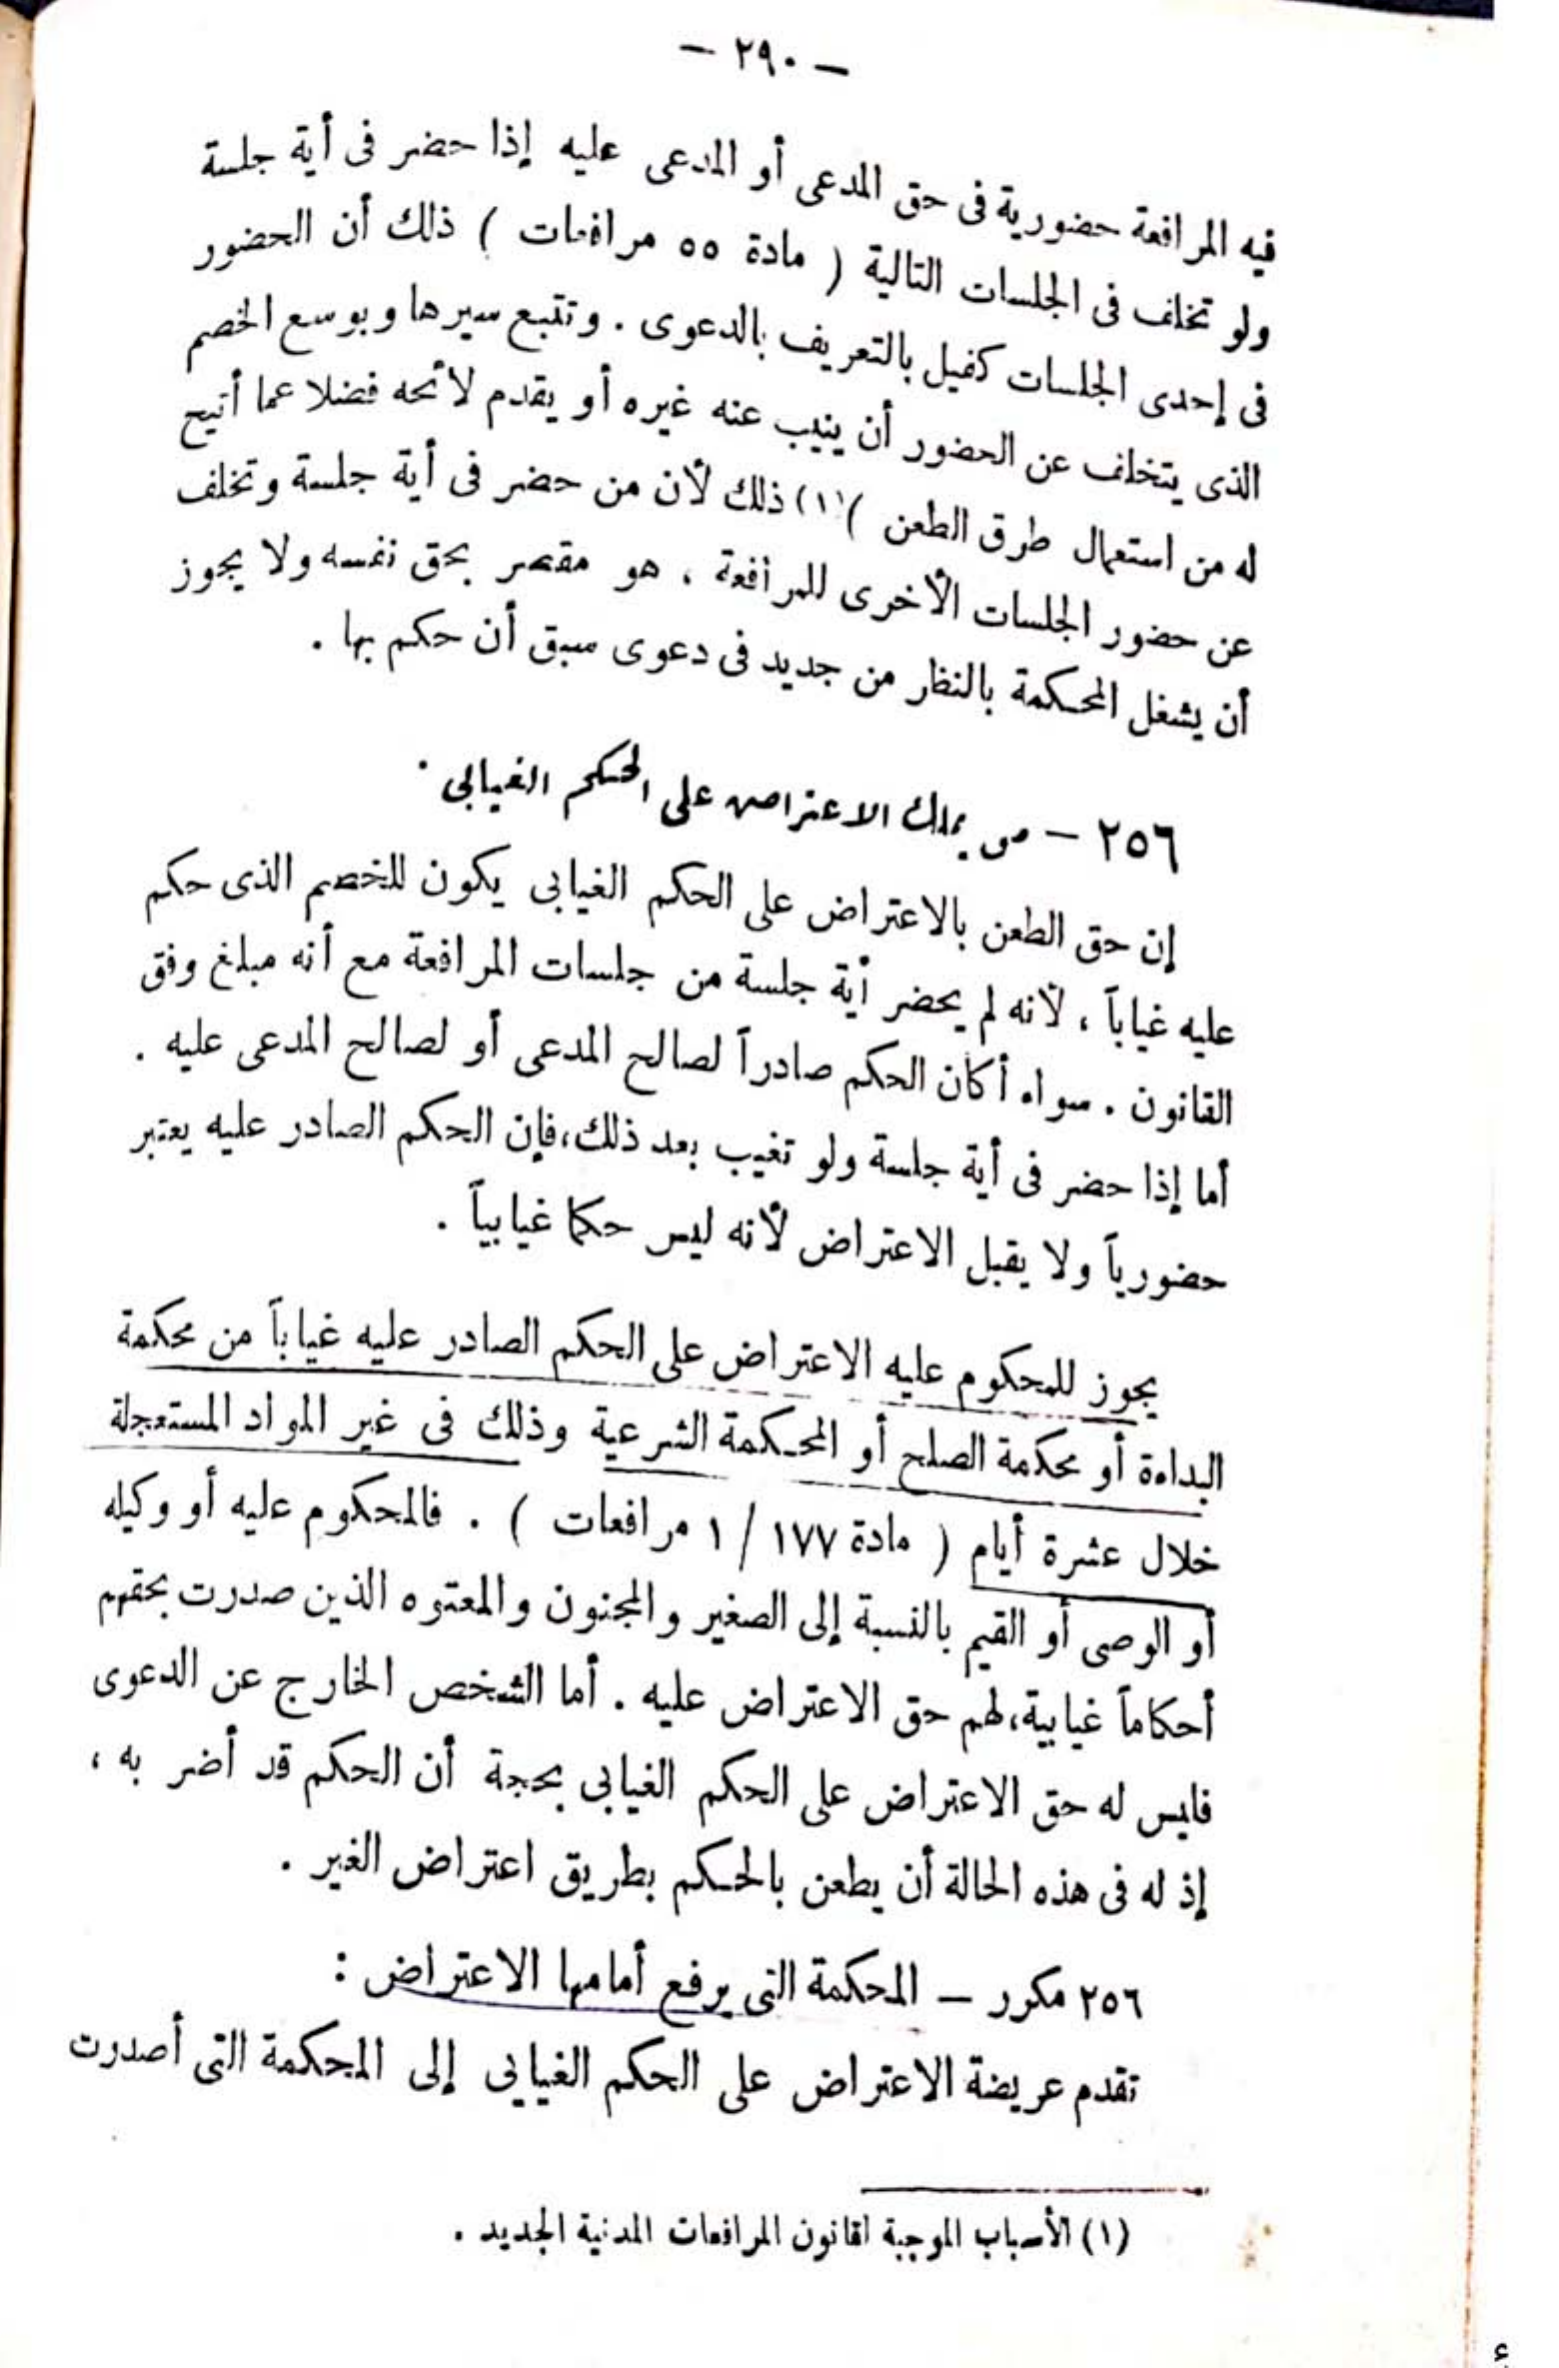 — ٢٩٠ —
فيه المرافعة حضورية فى حق المدعى أو المدعى عليه إذا حضر فى أية جلسة
ولو تخلف فى الجلسات التالية ( مادة ٥٥ مرافعات ) ذلك أن الحضور
فى إحدى الجلسات كفيل بالتعريف بالدعوى . وتتبع سيرها وبوسع الخصم
الذى يتخلف عن الحضور أن ينيب عنه غيره أو يقدم لائحه فضلا عما أتيح
له من استعمال طرق الطعن )(١) ذلك لأن من حضر فى أية جلسة وتخلف
عن حضور الجلسات الأخرى للمرافعة ، هو مقصر بحق نفسه ولا يجوز
أن يشغل المحكمة بالنظر من جديد فى دعوى سبق أن حكم بها .
٢٥٦ — من يملك الاعتراض على الحكم الغيابى .
إن حق الطعن بالاعتراض على الحكم الغيابى يكون للخصم الذى حكم
عليه غياباً ، لأنه لم يحضر أية جلسة من جلسات المرافعة مع أنه مبلغ وفق
القانون . سواء أكان الحكم صادراً لصالح المدعى أو لصالح المدعى عليه .
أما إذا حضر فى أية جلسة ولو تغيب بعد ذلك،فإن الحكم الصادر عليه يعتبر
حضورياً ولا يقبل الاعتراض لأنه ليس حكما غيابياً .
يجوز للمحكوم عليه الاعتراض على الحكم الصادر عليه غياباً من محكمة
البداءة أو محكمة الصلح أو المحكمة الشرعية وذلك فى غير المواد المستعجلة
خلال عشرة أيام ( مادة ١٧٧ / ١ مرافعات ) . فالمحكوم عليه أو وكيله
أو الوصى أو القيم بالنسبة إلى الصغير والمجنون والمعتوه الذين صدرت بحقهم
أحكاماً غيابية،لهم حق الاعتراض عليه . أما الشخص الخارج عن الدعوى
فليس له حق الاعتراض على الحكم الغيابى بحجة أن الحكم قد أضر به ،
إذ له فى هذه الحالة أن يطعن بالحكم بطريق اعتراض الغير .
٢٥٦ مكرر — المحكمة التى يرفع أمامها الاعتراض :
تقدم عريضة الاعتراض على الحكم الغيابى إلى المحكمة التى أصدرت
(١) الأسباب الموجبة لقانون المرافعات المدنية الجديد .